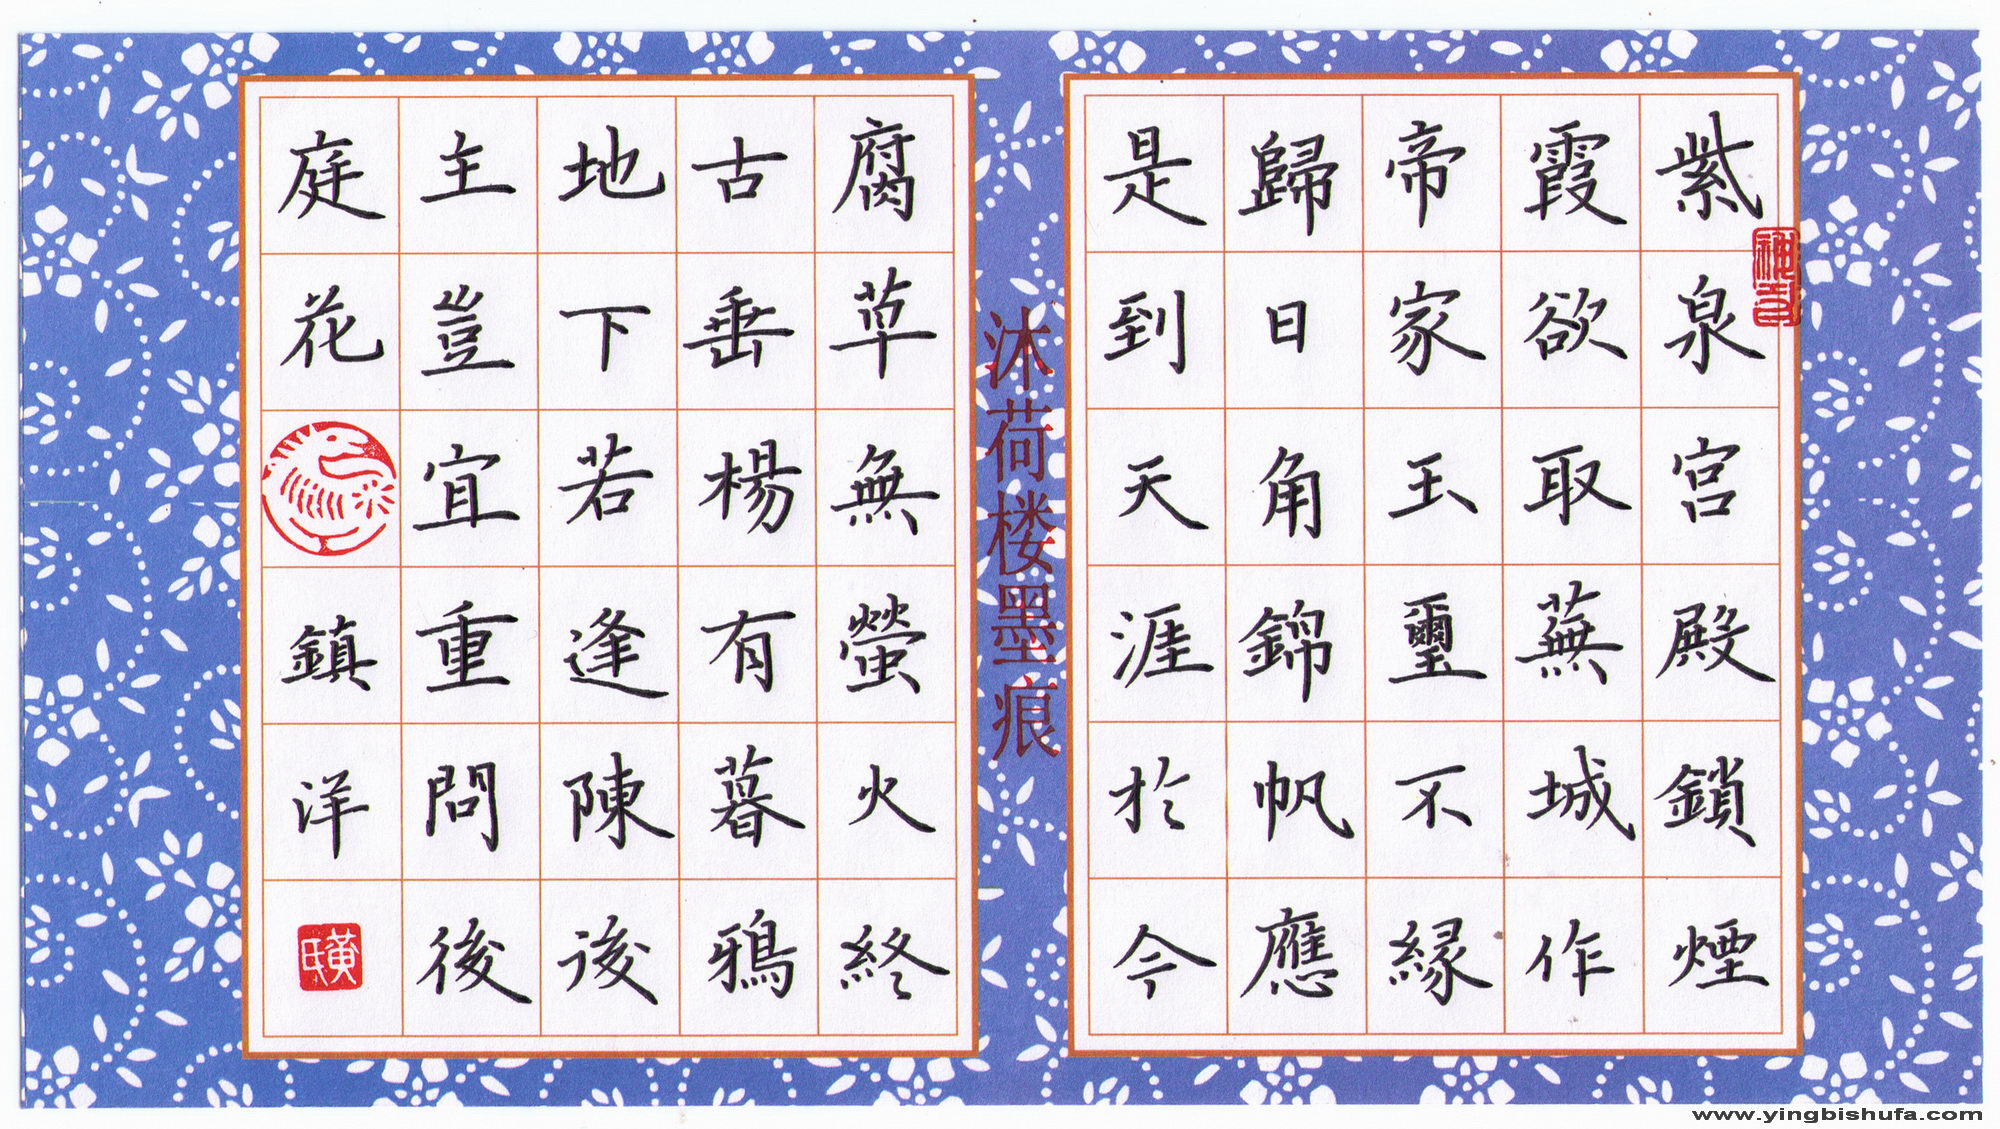 紫泉宮殿鎖煙
霞欲取蕪城作
帝家玉璽不緣
歸日角錦帆應
是到天涯於今
沐荷楼墨痕
腐草無螢火終
古垂楊有暮鴉
地下若逢陳後
主豈宜重問後
庭花
鎮洋
www.yingbishufa.com